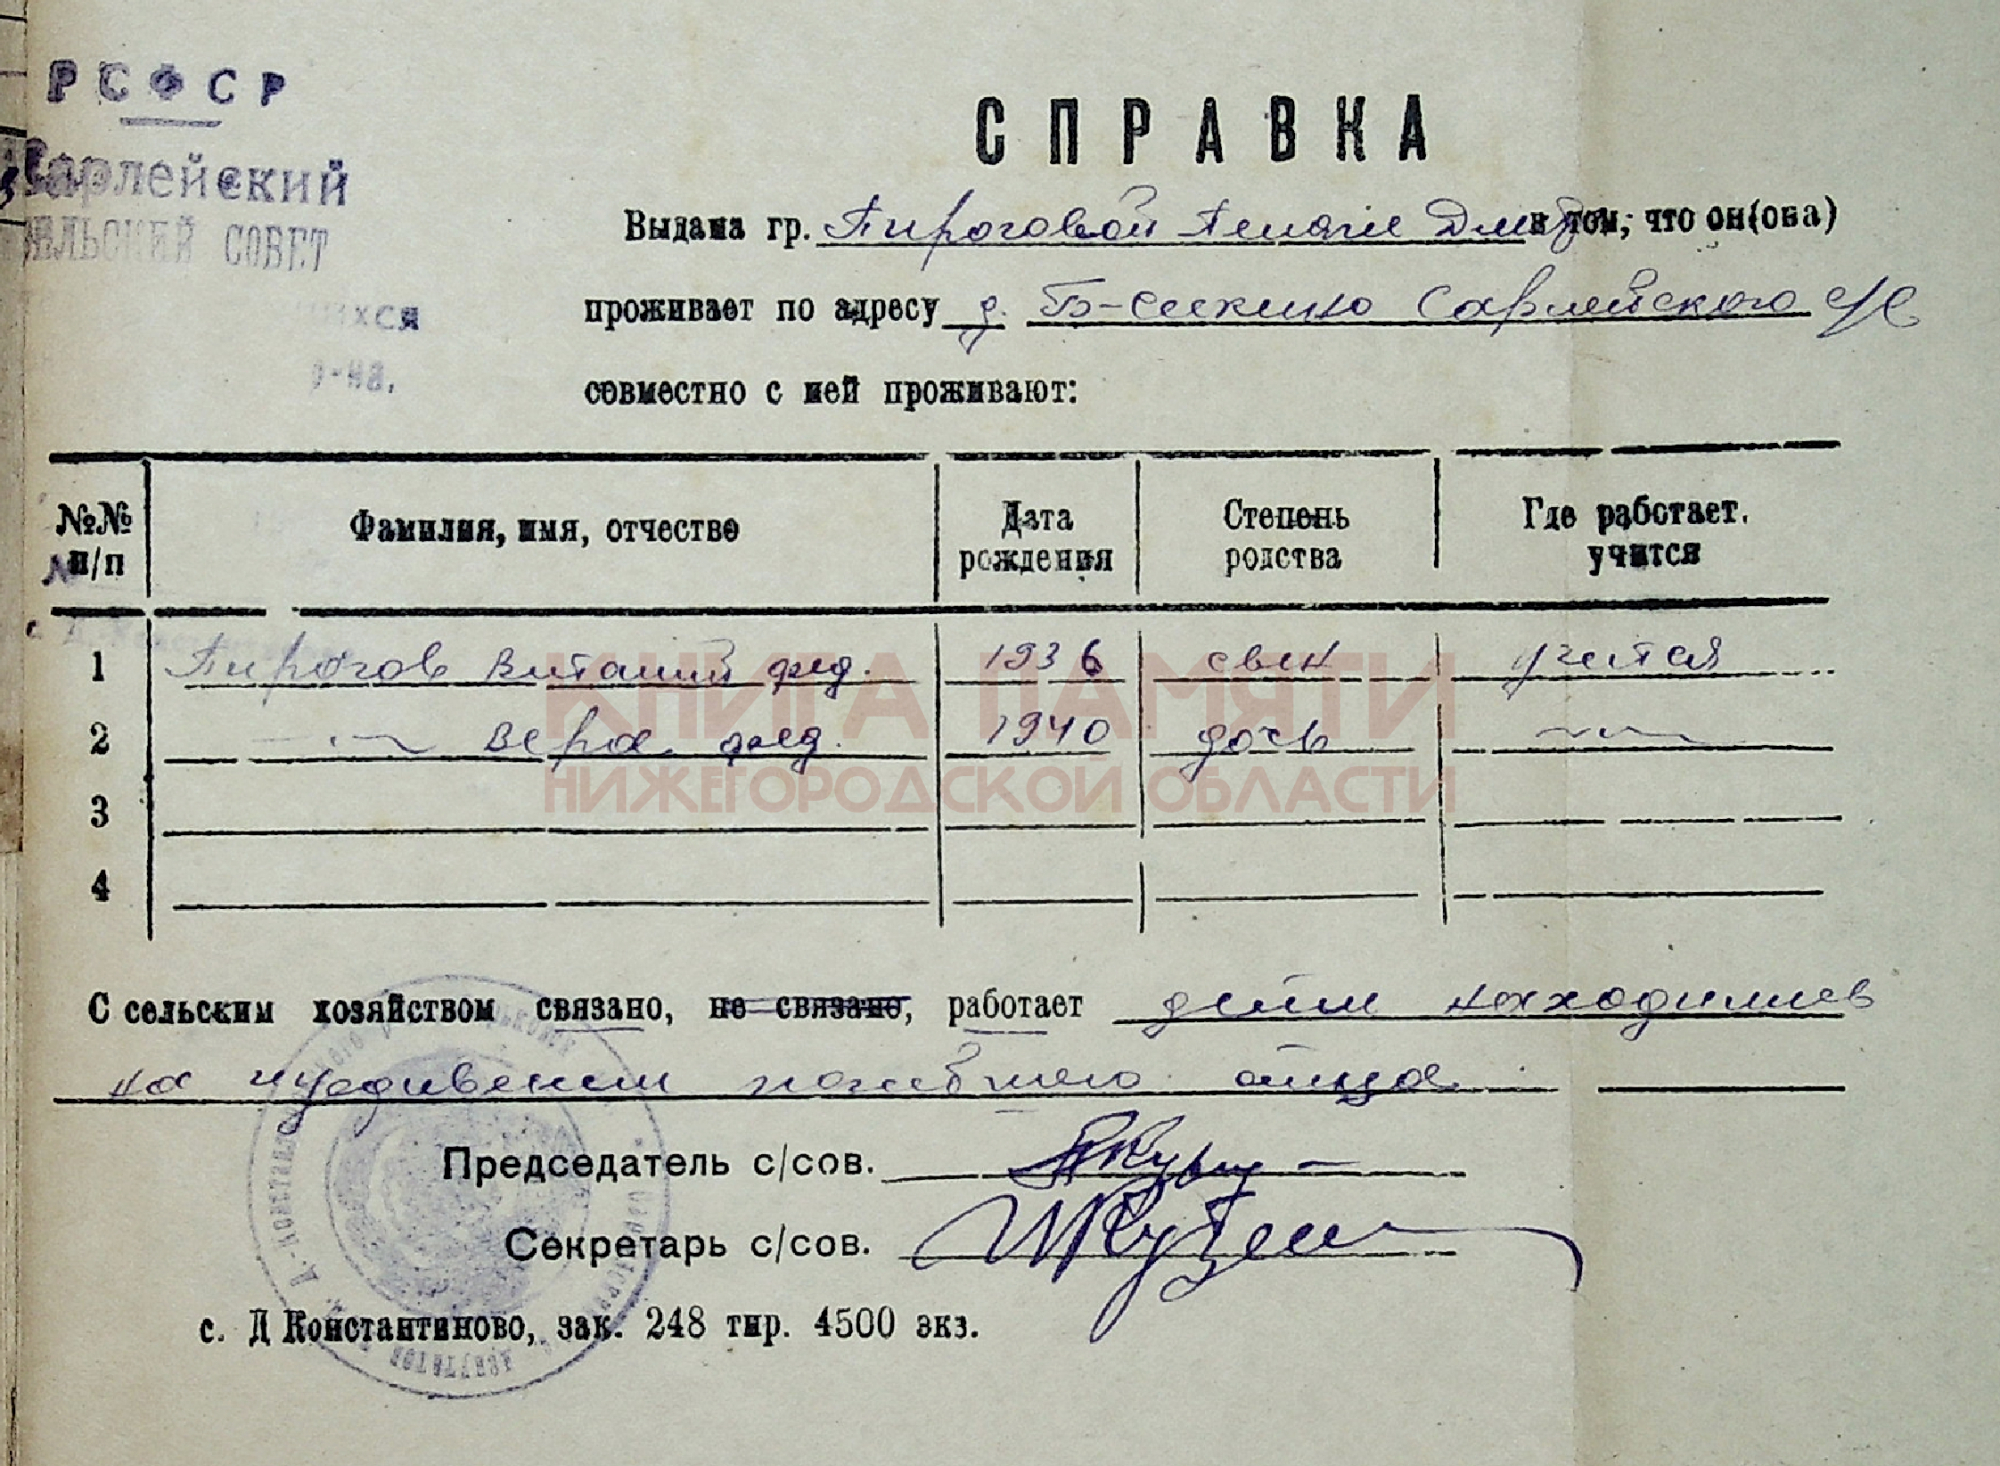 РСФСР
Сарлейский
СЕЛЬСКИЙ СОВЕТ
р-на.
СПРАВКА
Выдана гр. Пироговой Пелагие Дмитр в том, что он(она)
проживает по адресу д. Б-Сескино Сарлейского с/с
совместно с ней проживают:
№№ п/п Фамилия, имя, отчество Дата рождения Степень родства Где работает. учится
1 Пирогов Виталий фед. 1936 сын учится
2 —"— Вера фед. 1940 дочь —"—
3
4
КНИГА ПАМЯТИ
НИЖЕГОРОДСКОЙ ОБЛАСТИ
С сельским хозяйством связано, не связано, работает дети находились
на иждивении погибшего отца
Председатель с/сов.
Секретарь с/сов.
с. Д Константиново, зак. 248 тир. 4500 экз.